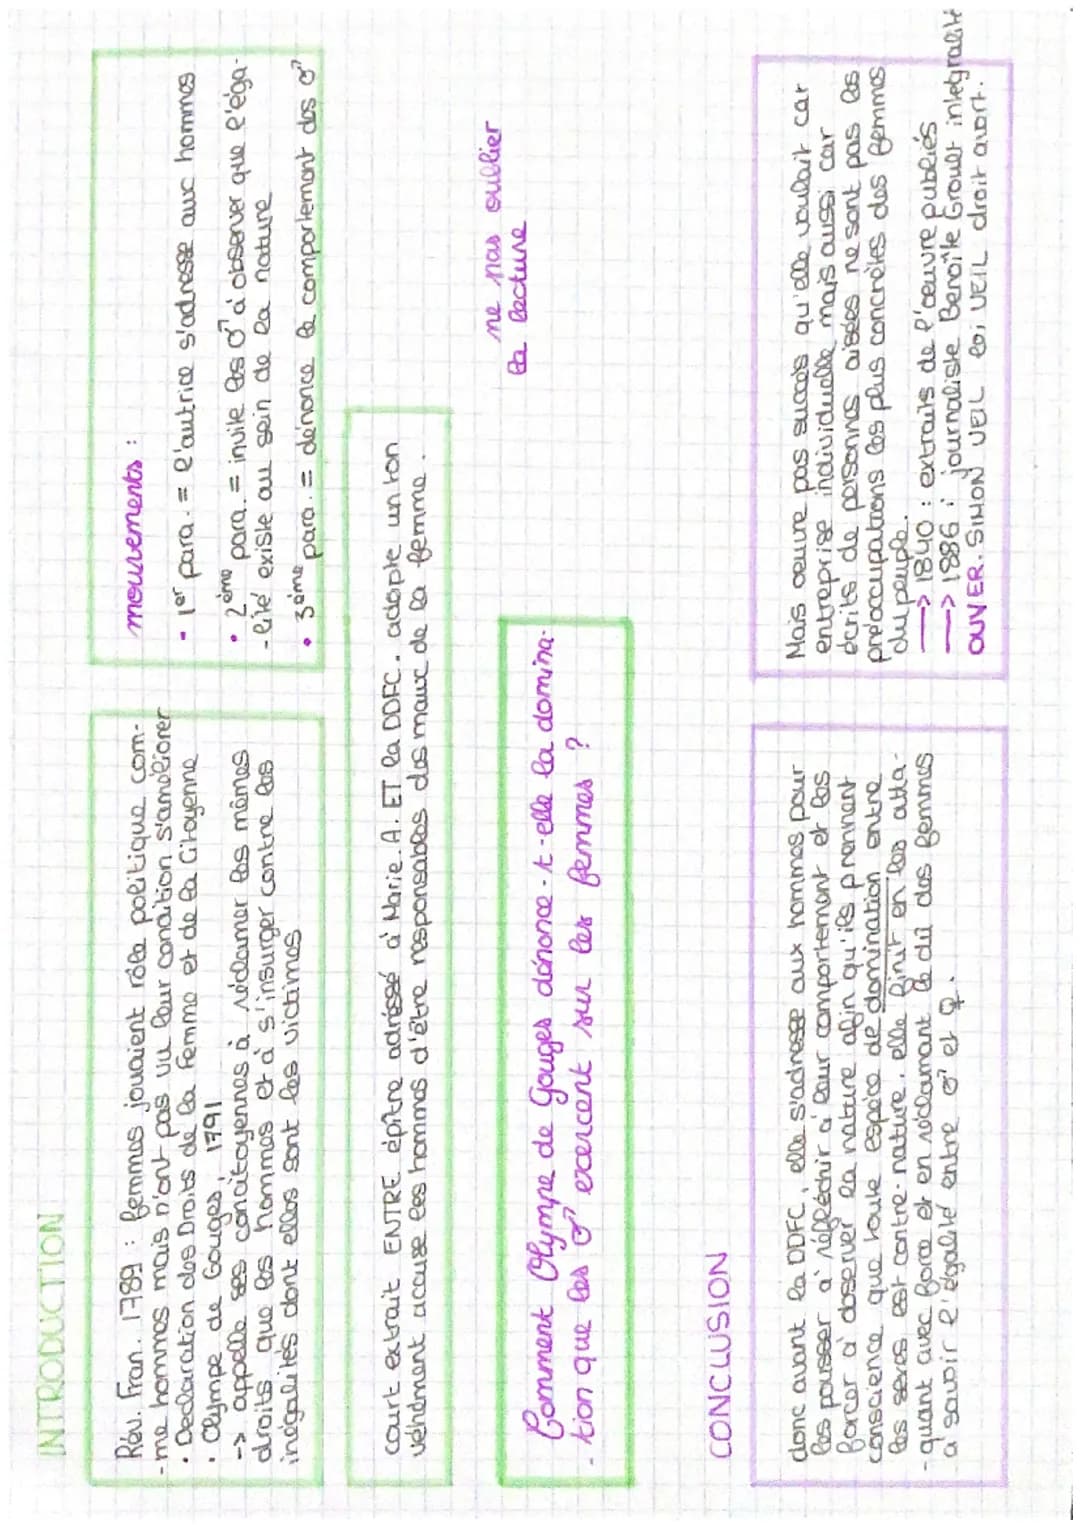 INTRODUCTION
Rév. Fran. 1789 : femmes jouaient rôle politique com-
-me hommes mais n'ont pas vu leur condition s'améliorer
• Declaration des Droits de la Femme et de la Citoyenne
• Olympe de Gouges, 1791
-> appelle ses concitoyennes à réclamer les mêmes
droits que les hommes et à s'insurger contre les
inégalités dont elles sont les victimes
mouvements :
• 1er para. = l'autrice s'adresse aux hommes
• 2ème para. = invite les ♂ à observer que l'éga-
-lité existe au sein de la nature
• 3ème para. = dénonce le comportement des ♂
court extrait ENTRE épître adréssé à Marie. A. ET la DDFC. adopte un ton
véhément accuse les hommes d'être responsables des maux de la femme.
ne pas oublier
la lecture
Comment Olympe de Gouges dénonce-t-elle la domina-
-tion que les ♂ exercent sur les femmes ?
CONCLUSION
donc avant la DDFC, elle s'adresse aux hommes pour
les pousser à réfléchir à leur comportement et les
forcer à observer la nature afin qu'ils prennent
conscience que toute espèce de domination entre
les sexes est contre-nature. elle finit en les atta-
-quant avec force et en réclamant le dû des femmes
à savoir l'égalité entre ♂ et ♀.
Mais oeuvre pas succès qu'elle voulait car
entreprise individuelle mais aussi car
écrits de personnes aisées ne sont pas les
préoccupations les plus concrètes des femmes
du peuple.
—> 1840 : extraits de l'œuvre publiés
—> 1986 : journaliste Benoîte Groult intégralité
OUVER. SIMON VEIL loi VEIL droit avort.